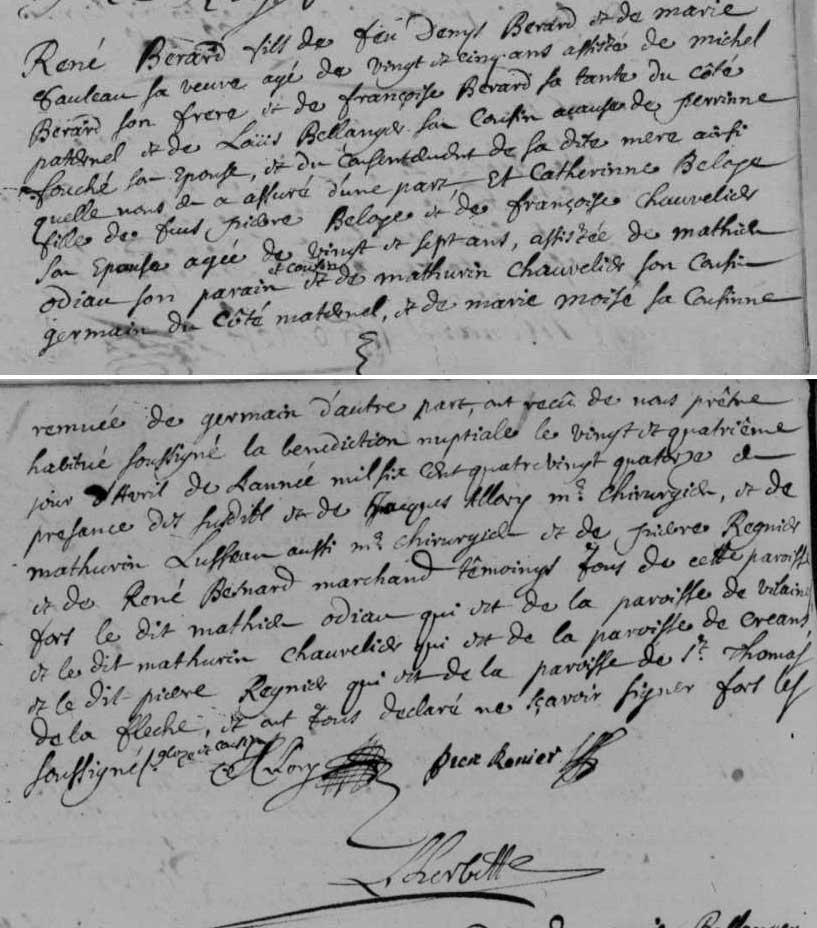 René Berard fils de feu Denys Berard et de marie
Gauleau sa veuve agé de vingt et cinq ans assisté de michel
Berard son frere et de françoise Berard sa tante du côté
paternel et de Loüis Bellanger son Cousin acause de perrinne
fouché son Epouse, et du consentement de sa dite mere ainsi
quelle nous en a assuré d'une part, Et Catherinne Beloge
fille de feus pierre Beloge et de françoise Chauvelier
son Epouse agée de vingt et sept ans, assistée de mathieu
et cousin
odiau son parain et de mathurin Chauvelier son Cousin
germain du côté maternel, et de marie moisé sa Cousinne
remuée de germain d'autre part, ont recu de nous prêtre
habitué soussigné la benediction nuptiale le vingt et quatriême
jour d'Avril de Lannée mil six cent quatre vingt quatorze en
presance des susdits et de Jacques Allory mr Chirurgien, et de
mathurin Lusseau aussi mr chirurgien et de pierre Regnier
et de René Besnard marchand têmoings tous de cette paroisse
fors le dit mathieu odiau qui est de la paroisse de vilaine
et le dit mathurin Chauvelier qui est de la paroisse de Creans
et le dit pierre Regnier qui est de la paroisse de St Thomas
de la fleche, et ont tous declaré ne sçavoir signer fors les
soussignés glose et cousin
Allory pier Renier
Lherbette